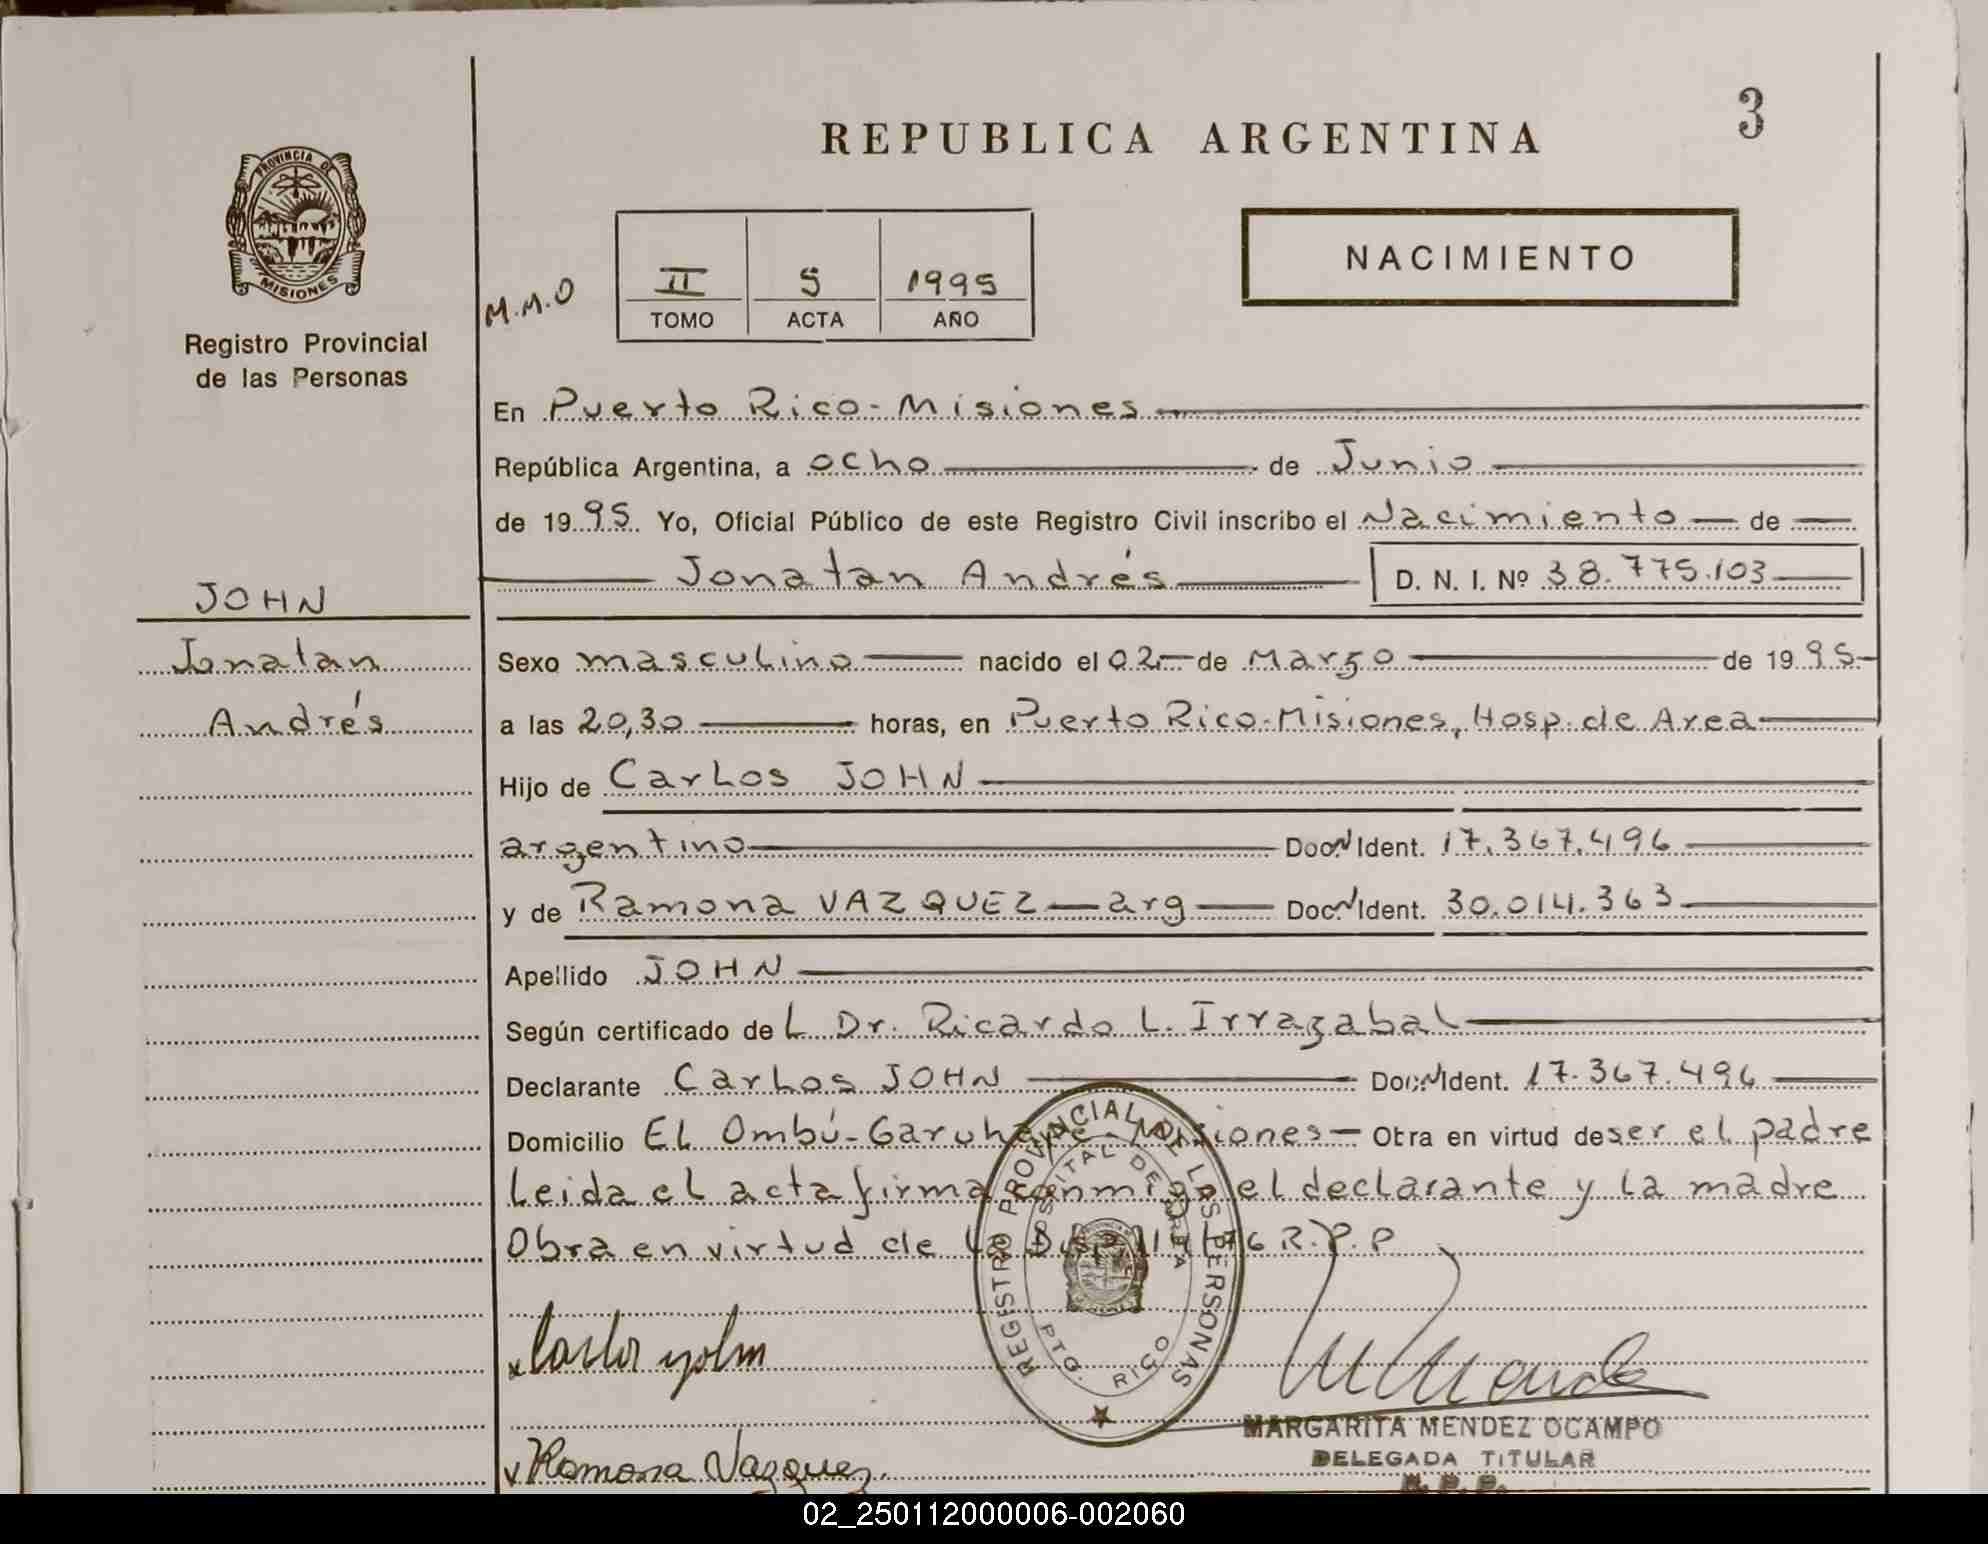 REPUBLICA ARGENTINA
3
PROVINCIA DE
MISIONES
Registro Provincial
de las Personas
M.M.O
II 5 1995
TOMO ACTA AÑO
NACIMIENTO
En Puerto Rico-Misiones
República Argentina, a ocho de Junio
de 1995 Yo, Oficial Público de este Registro Civil inscribo el Nacimiento de
Jonatan Andrés D. N. I. Nº 38.775.103
JOHN
Jonatan
Andrés
Sexo masculino nacido el 02 de Marzo de 1995
a las 20,30 horas, en Puerto Rico-Misiones, Hosp. de Area
Hijo de Carlos JOHN
argentino Doc. N Ident. 17.367.496
y de Ramona VAZQUEZ - arg Doc. N Ident. 30.014.363
Apellido JOHN
Según certificado del Dr. Ricardo L. Irrazabal
Declarante Carlos JOHN Doc. N Ident. 17.367.496
Domicilio EL Ombú-Garuhapé-Misiones - Obra en virtud de ser el padre
Leida el acta firma conmigo el declarante y la madre
Obra en virtud de la R.P.P
REGISTRO PROVINCIAL DE LAS PERSONAS
HOSPITAL DE AREA
PTO. RICO
Carlos John
MARGARITA MENDEZ OCAMPO
DELEGADA TITULAR
R.P.P.
Ramona Vazquez
02_250112000006-002060